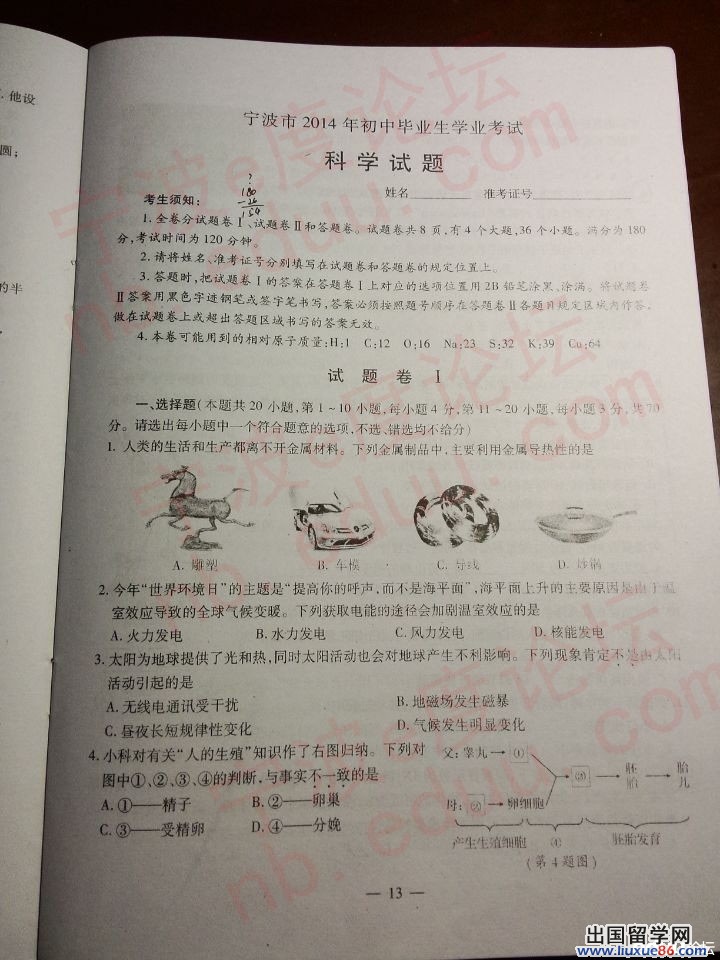 . 他设
圆；
的半
宁波市 2014 年初中毕业生学业考试
科学试题
姓名________ 准考证号____________
?
180
-26
154
考生须知：
1. 全卷分试题卷Ⅰ、试题卷Ⅱ和答题卷。试题卷共 8 页，有 4 个大题，36 个小题。满分为 180
分，考试时间为 120 分钟。
2. 请将姓名、准考证号分别填写在试题卷和答题卷的规定位置上。
3. 答题时，把试题卷Ⅰ的答案在答题卷Ⅰ上对应的选项位置用 2B 铅笔涂黑、涂满。将试题卷
Ⅱ答案用黑色字迹钢笔或签字笔书写，答案必须按照题号顺序在答题卷Ⅱ各题目规定区域内作答，
做在试题卷上或超出答题区域书写的答案无效。
4. 本卷可能用到的相对原子质量：H：1 C：12 O：16 Na：23 S：32 K：39 Cu：64
试 题 卷 Ⅰ
一、选择题（本题共 20 小题，第 1～10 小题，每小题 4 分，第 11～20 小题，每小题 3 分，共 70
分。请选出每小题中一个符合题意的选项，不选、错选均不给分）
1. 人类的生活和生产都离不开金属材料。下列金属制品中，主要利用金属导热性的是
A. 雕塑 B. 车模 C. 导线 D. 炒锅
2. 今年“世界环境日”的主题是“提高你的呼声，而不是海平面”，海平面上升的主要原因是由于温
室效应导致的全球气候变暖。下列获取电能的途径会加剧温室效应的是
A. 火力发电 B. 水力发电 C. 风力发电 D. 核能发电
3. 太阳为地球提供了光和热，同时太阳活动也会对地球产生不利影响。下列现象肯定不是由太阳
活动引起的是
A. 无线电通讯受干扰 B. 地磁场发生磁暴
C. 昼夜长短规律性变化 D. 气候发生明显变化
4. 小科对有关“人的生殖”知识作了右图归纳。下列对
图中①、②、③、④的判断，与事实不一致的是
A. ①——精子 B. ②——卵巢
C. ③——受精卵 D. ④——分娩
父：睾丸→①
③→胚胎→胎儿
母：②→卵细胞
产生生殖细胞 ④ 胚胎发育
（第 4 题图）
— 13 —
宁波e度论坛
nb.eduu.com
宁波e度论坛
nb.eduu.com
宁波e度论坛
nb.eduu.com
出国留学网
www.liuxue86.com
坛